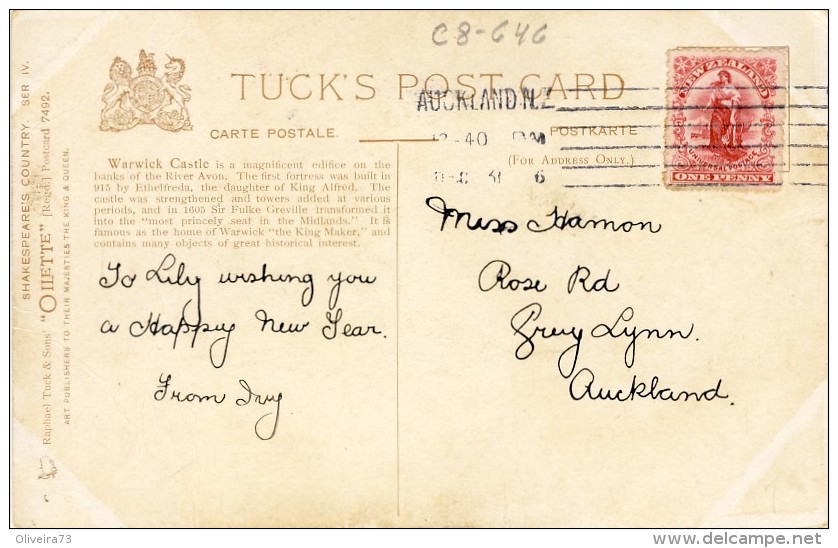 C8-646
TUCK'S POST CARD
CARTE POSTALE.
POSTKARTE
(FOR ADDRESS ONLY.)
AUCKLAND N.Z
12-40 PM
DEC 31 6
NEW ZEALAND
UNIVERSAL POSTAGE
ONE PENNY
Warwick Castle is a magnificent edifice on the
banks of the River Avon. The first fortress was built in
915 by Ethelfreda, the daughter of King Alfred. The
castle was strengthened and towers added at various
periods, and in 1605 Sir Fulke Greville transformed it
into the "most princely seat in the Midlands." It is
famous as the home of Warwick "the King Maker," and
contains many objects of great historical interest.
To Lily wishing you
a Happy New Year.
From Ivy
Miss Hamon
Rose Rd
Grey Lynn.
Auckland.
SHAKESPEARE'S COUNTRY. SER IV.
Raphael Tuck & Sons' "OILETTE" [Regd.] Postcard 7492.
ART PUBLISHERS TO THEIR MAJESTIES THE KING & QUEEN.
Oliveira73
www.delcampe.net